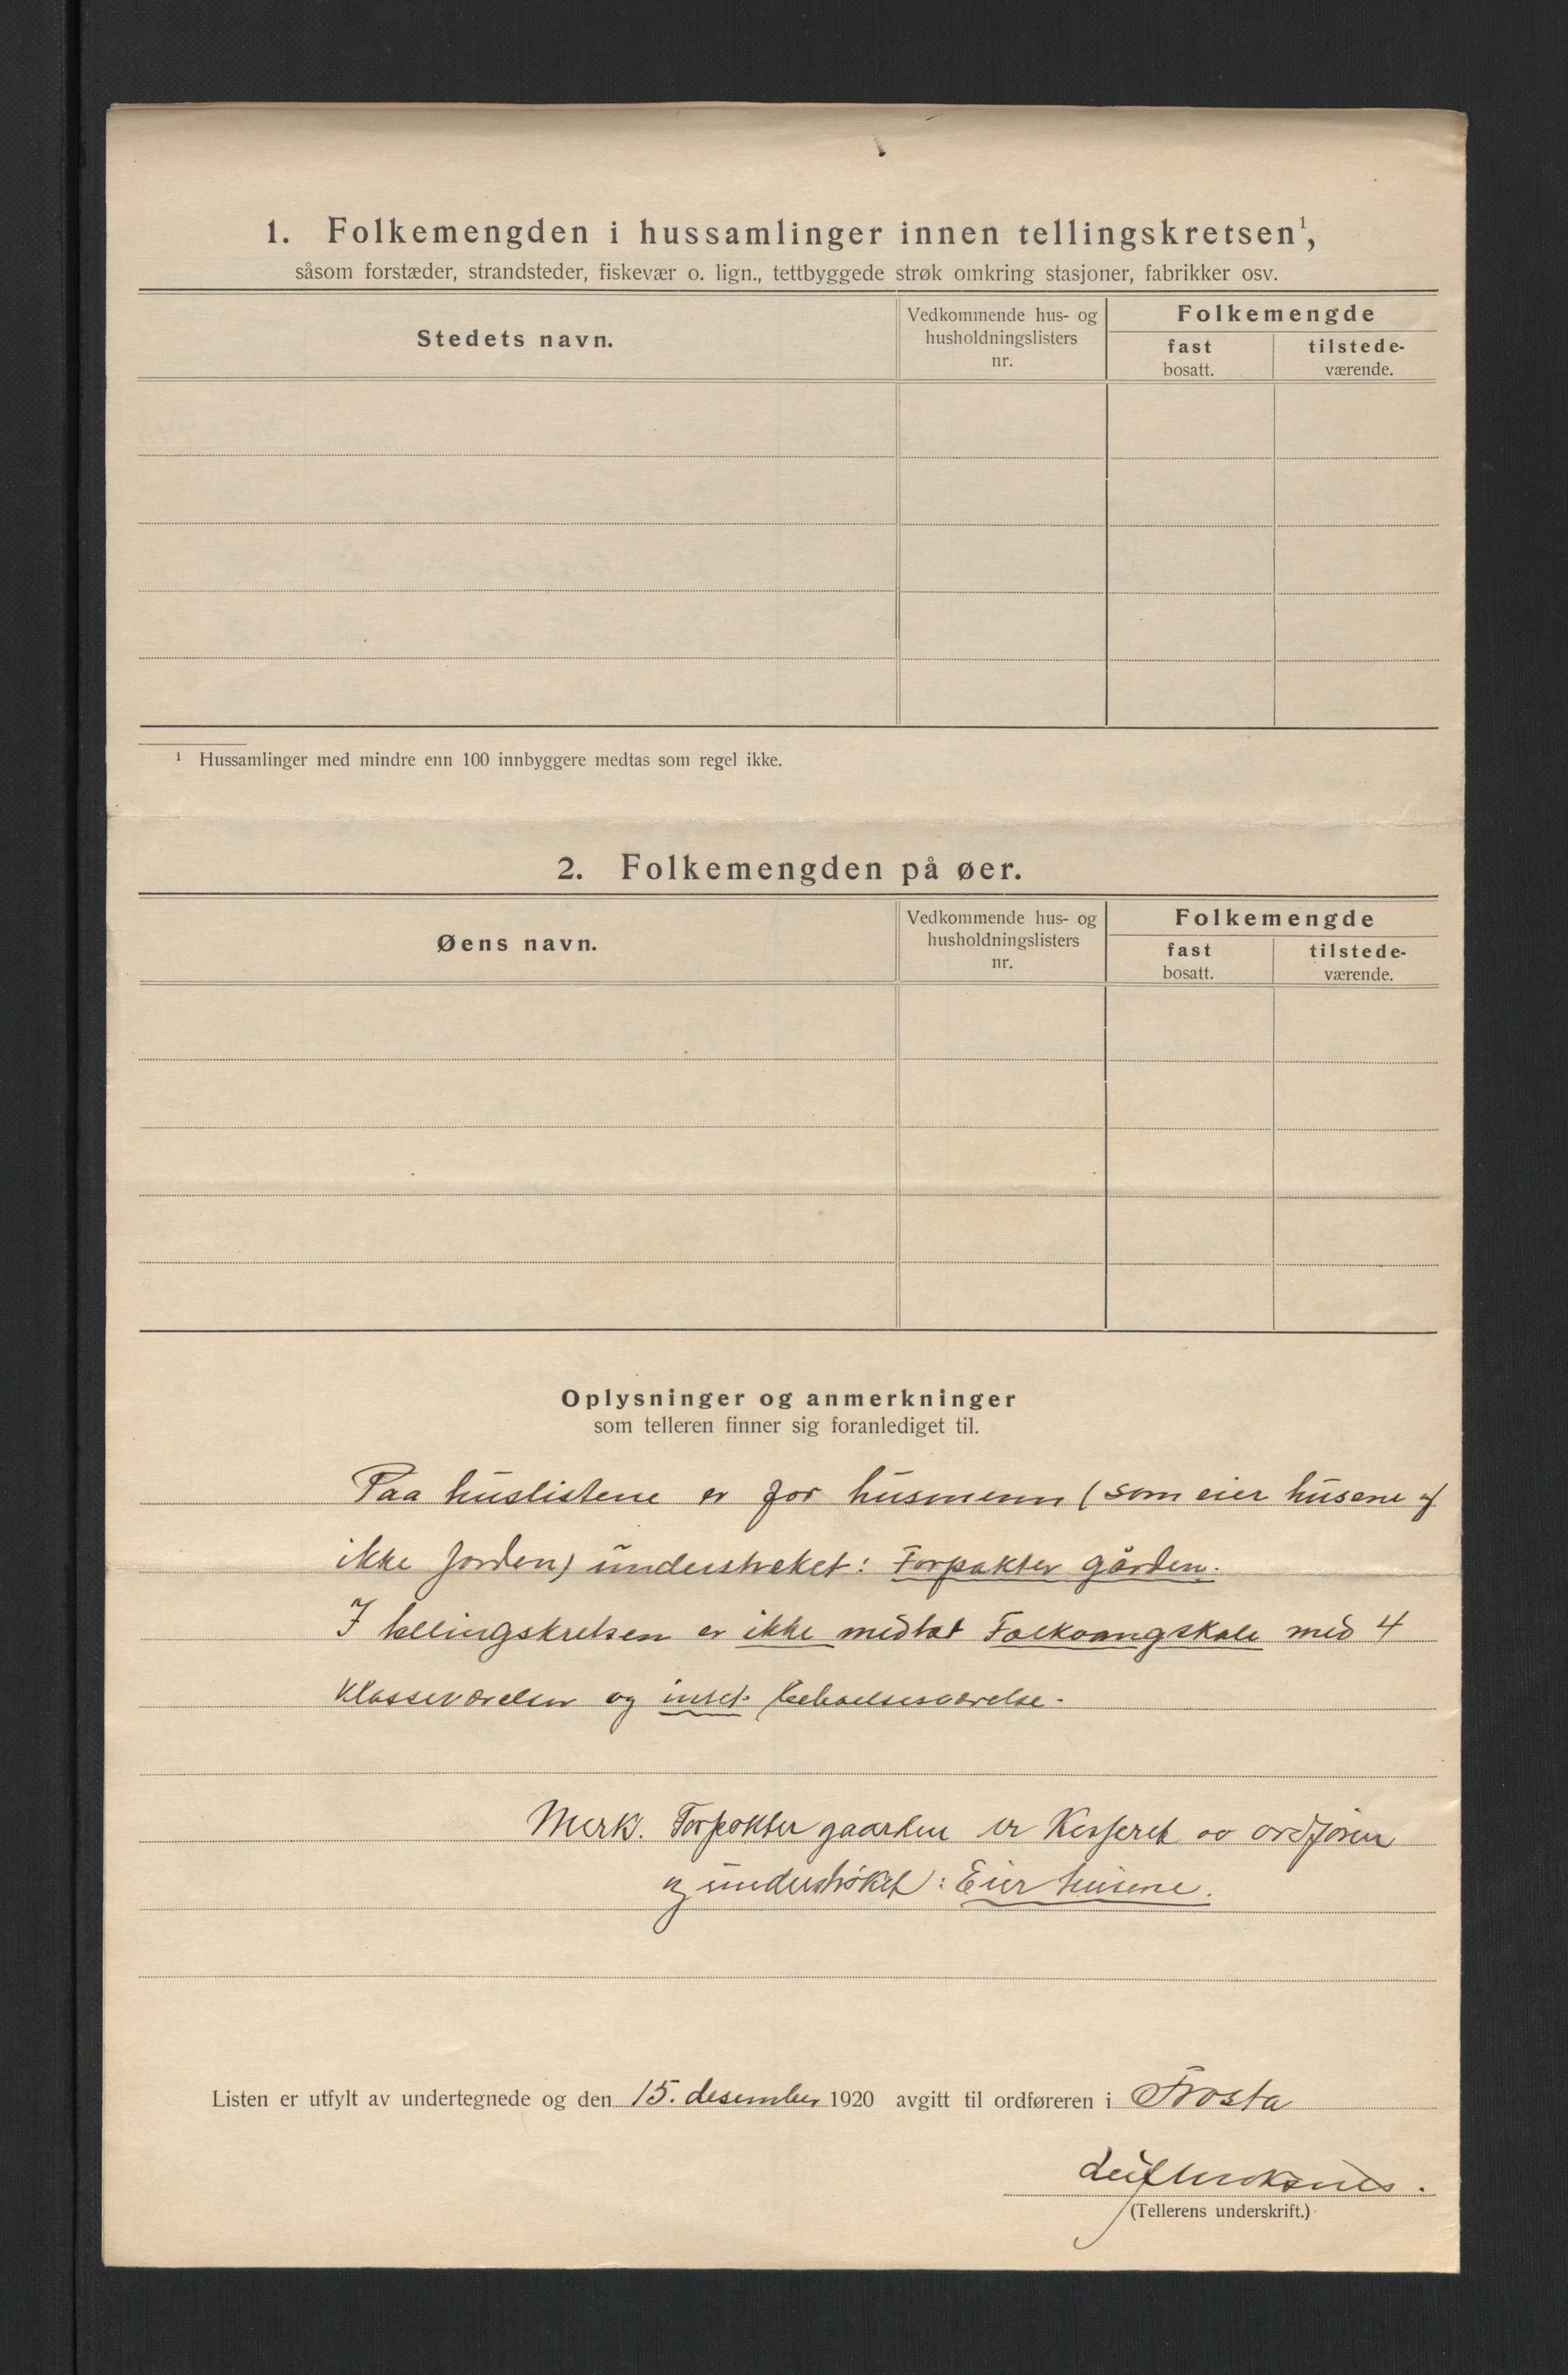 1. Folkemengden i hussamlinger innen tellingskretsen¹,
såsom forstæder, strandsteder, fiskevær o. lign., tettbyggede strøk omkring stasjoner, fabrikker osv.
Stedets navn.
Vedkommende hus- og
husholdningslisters
nr.
Folkemengde
fast
bosatt.
tilstede-
værende.
¹ Hussamlinger med mindre enn 100 innbyggere medtas som regel ikke.
2. Folkemengden på øer.
Øens navn.
Vedkommende hus- og
husholdningslisters
nr.
Folkemengde
fast
bosatt.
tilstede-
værende.
Oplysninger og anmerkninger
som telleren finner sig foranlediget til.
Paa huslistene er for husmenn (som eier husene og
ikke jorden) understreket: Forpakter gården.
I tellingskretsen er ikke medtat med 4
Klasseværelser og intet beboelsesværelse.
Merk. Forpakter gaarden er av ordføren
og understrøket: Eier husene.
Listen er utfylt av undertegnede og den 15. desember 1920 avgitt til ordføreren i Frosta
Leif
(Tellerens underskrift.)